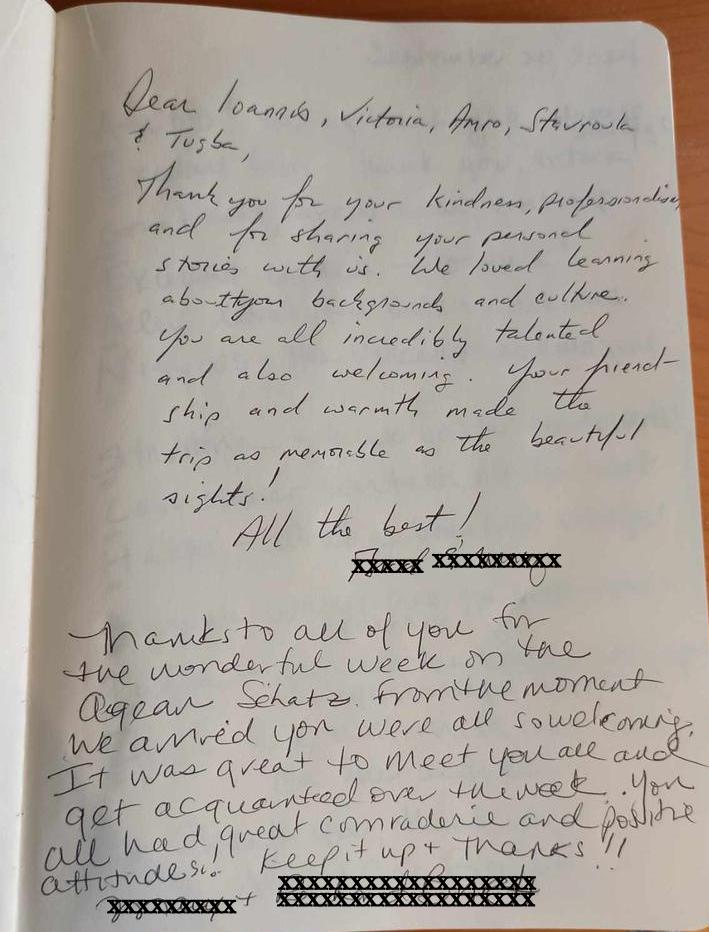 Dear Ioannis, Victoria, Amro, Stavroula
& Tugba,
Thank you for your kindness, professionalism
and for sharing your personal
stories with us. We loved learning
about your backgrounds and culture.
You are all incredibly talented
and also welcoming. Your friend-
ship and warmth made the
trip as memorable as the beautiful
sights!
All the best!
Thanks to all of you for
the wonderful week on the
Aegean Schatz. From the moment
we arrived you were all so welcoming.
It was great to meet you all and
get acquainted over the week. You
all had great comraderie and positive
attitudes! Keep it up + Thanks!!